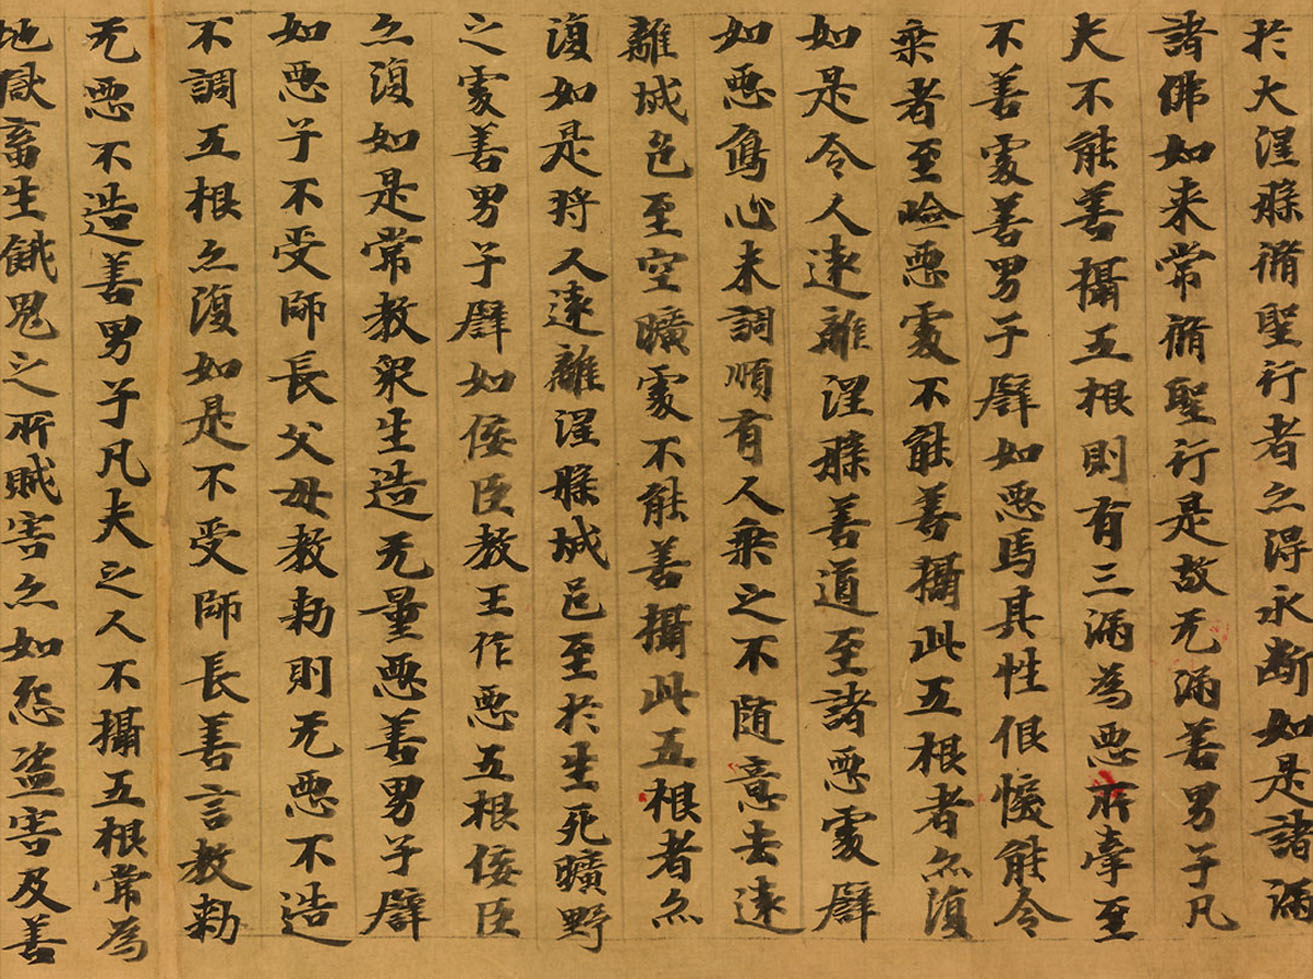 於大涅槃脩聖行者亦得永断如是諸漏
諸佛如来常脩聖行是故无漏善男子凡
夫不能善攝五根則有三漏為惡所牽至
不善處善男子譬如惡馬其性佷悷能令
乘者至嶮惡處不能善攝此五根者亦復
如是令人遠離涅槃善道至諸惡處譬
如惡象心未調順有人乘之不随意去遠
離城邑至空曠處不能善攝此五根者亦
復如是将人遠離涅槃城邑至於生死曠野
之處善男子譬如佞臣教王作惡五根佞臣
亦復如是常教衆生造无量惡善男子譬
如惡子不受師長父母教勑則无惡不造
不調五根亦復如是不受師長善言教勑
无惡不造善男子凡夫之人不攝五根常為
地獄畜生餓鬼之所賊害亦如怨盗害及善